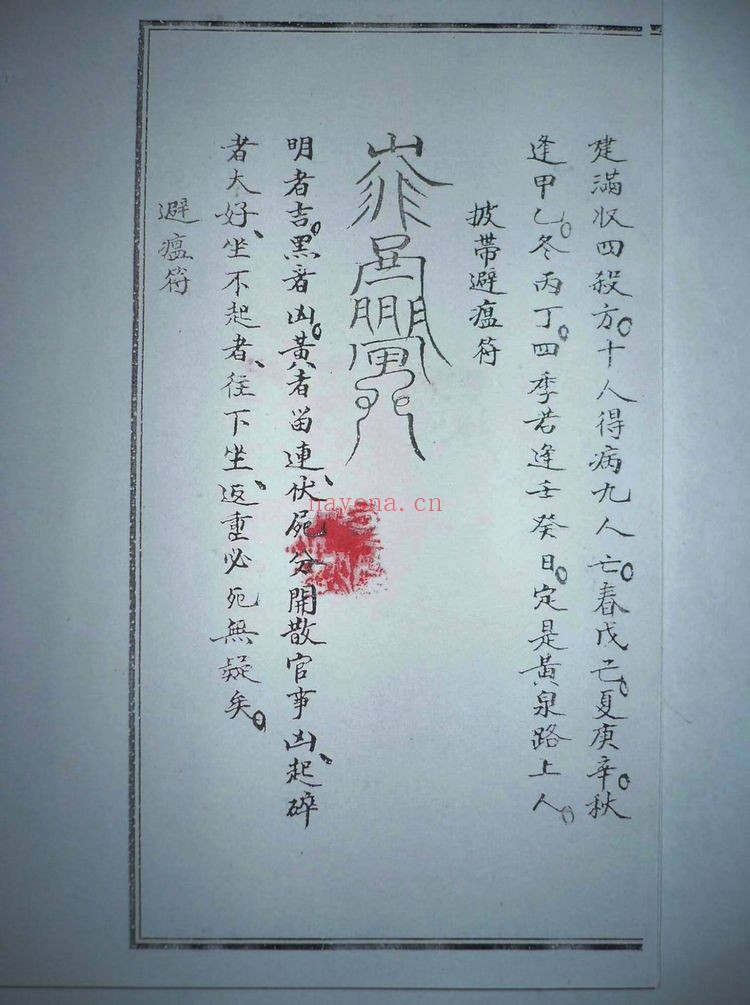 建滿收四殺方。十人得病九人亡。春戊己。夏庚辛。秋
逢甲乙。冬丙丁。四季若逢壬癸日。定是黃泉路上人。
披帶避瘟符
明者吉。黑者凶。黃者留連、伏屍分開散官事凶、起碎
者大好、坐不起者、往下坐、返重必死無疑矣。
避瘟符
nayona.cn